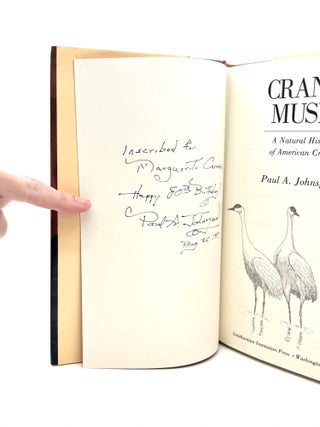 Inscribed for
Marguerite
Happy 80th Birthday
Paul A. Johnsgard
CRAN
MUSI
A Natural His
of American Cr
Paul A. Johns
Smithsonian Institution Press • Washington